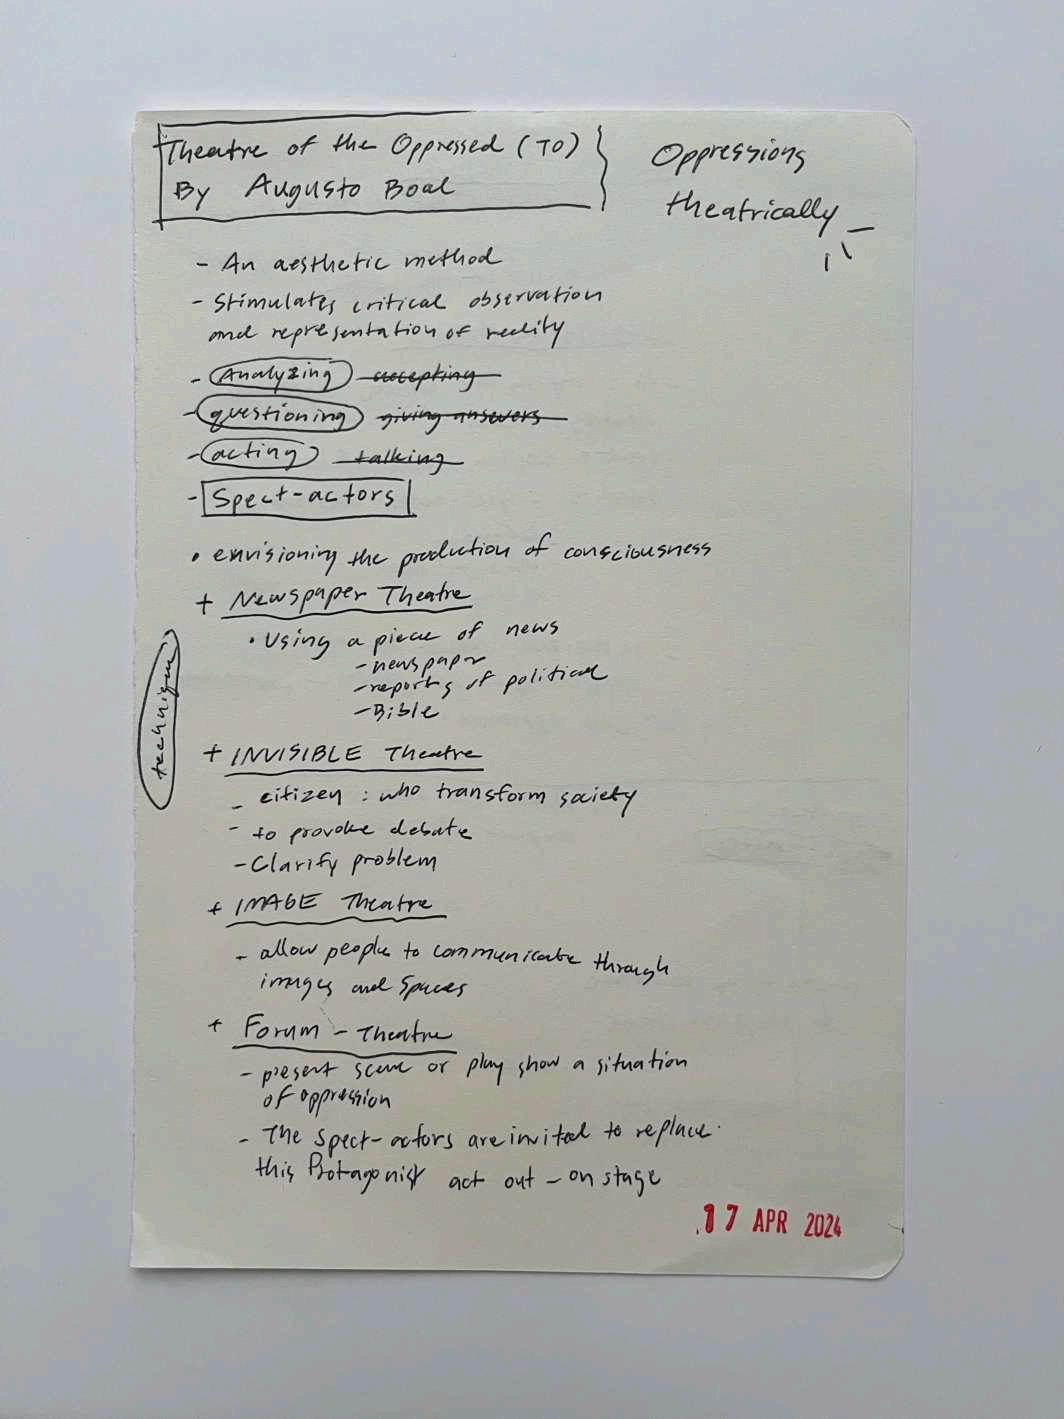 Theatre of the Oppressed (TO)
By Augusto Boal
Oppressions
theatrically
- An aesthetic method
- Stimulates critical observation
and representation of reality
- Analyzing accepting
- questioning giving answers
- acting talking
- Spect-actors
• envisioning the production of consciousness
+ Newspaper Theatre
• Using a piece of news
- newspaper
- reports of political
- Bible
technique
+ INVISIBLE Theatre
- citizen : who transform society
- to provoke debate
- Clarify problem
+ IMAGE Theatre
- allow people to communicate through
images and spaces
+ Forum - Theatre
- present scene or play show a situation
of oppression
- The spect-actors are invited to replace
this Protagonist act out - on stage
17 APR 2024